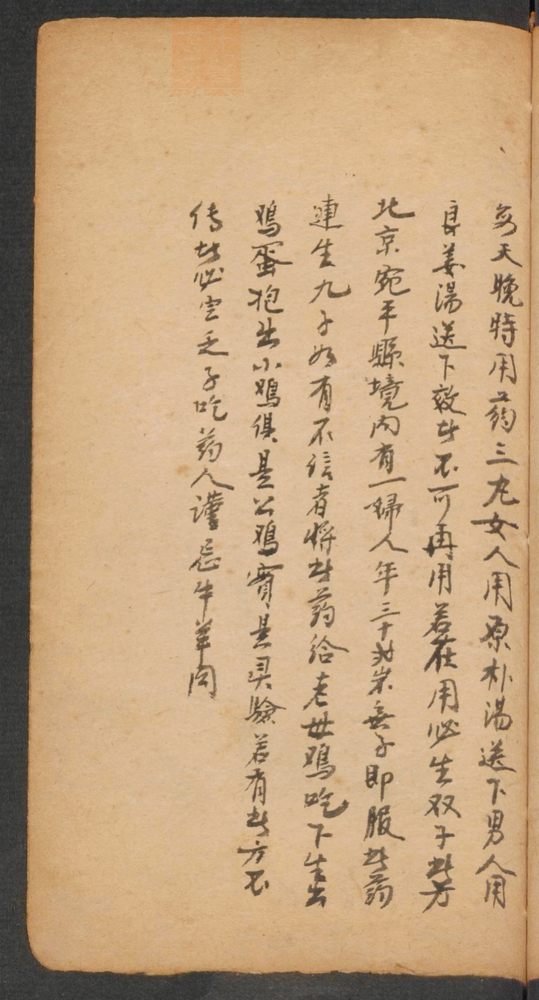 每天晚時用药三丸女人用原朴湯送下男人用
良姜湯送下效此不可再用若在用必生双子此方
北京宛平縣境内有一婦人年三十 岁無子即服此药
連生九子如有不信者将此药给老母鸡吃下生出
鸡蛋抱出小鸡俱是公鸡實是灵驗若有此方不
传者必定乏子吃药人謹忌牛羊肉